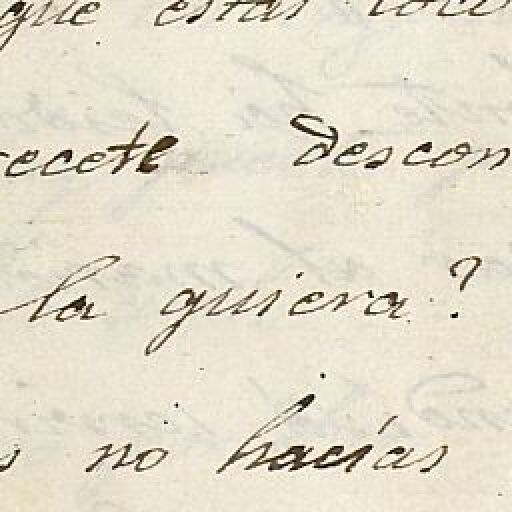 que estás
recete descon
la quiera?
s no hacías